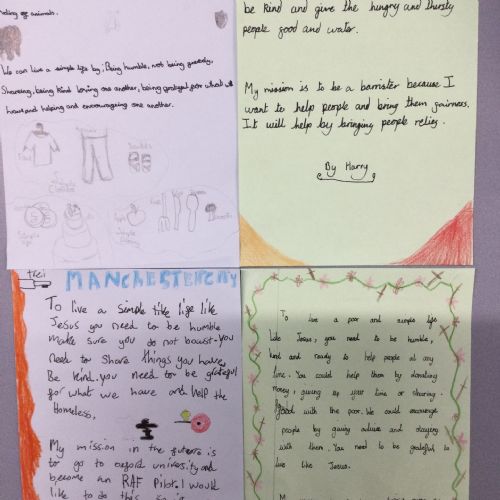 of animals.
We can live a simple life by: Being humble, not being greedy,
Sharing, being kind loving one another, being grateful for what we
have and helping and encouraging one another.
be kind and give the hungry and thirsty
people good and water.
My mission is to be a barrister because I
want to help people and bring them fairness.
It will help by bringing people relief.
By Harry
MANCHESTER CITY
To live a simple like life like
Jesus you need to be humble
make sure you do not boast. you
need to share things you have,
Be kind. you need to be grateful
for what we have and help the
Homeless,
My mission in the future is
to go to oxford university and
become an RAF Pilot I would
like to do this
To live a poor and simple life
like Jesus, you need to be humble,
kind and ready to help people at any
time. You could help them by donating
money, giving up your time or sharing
food with the poor. We could encourage
people by giving advice and staying
with them. You need to be grateful to
live like Jesus.